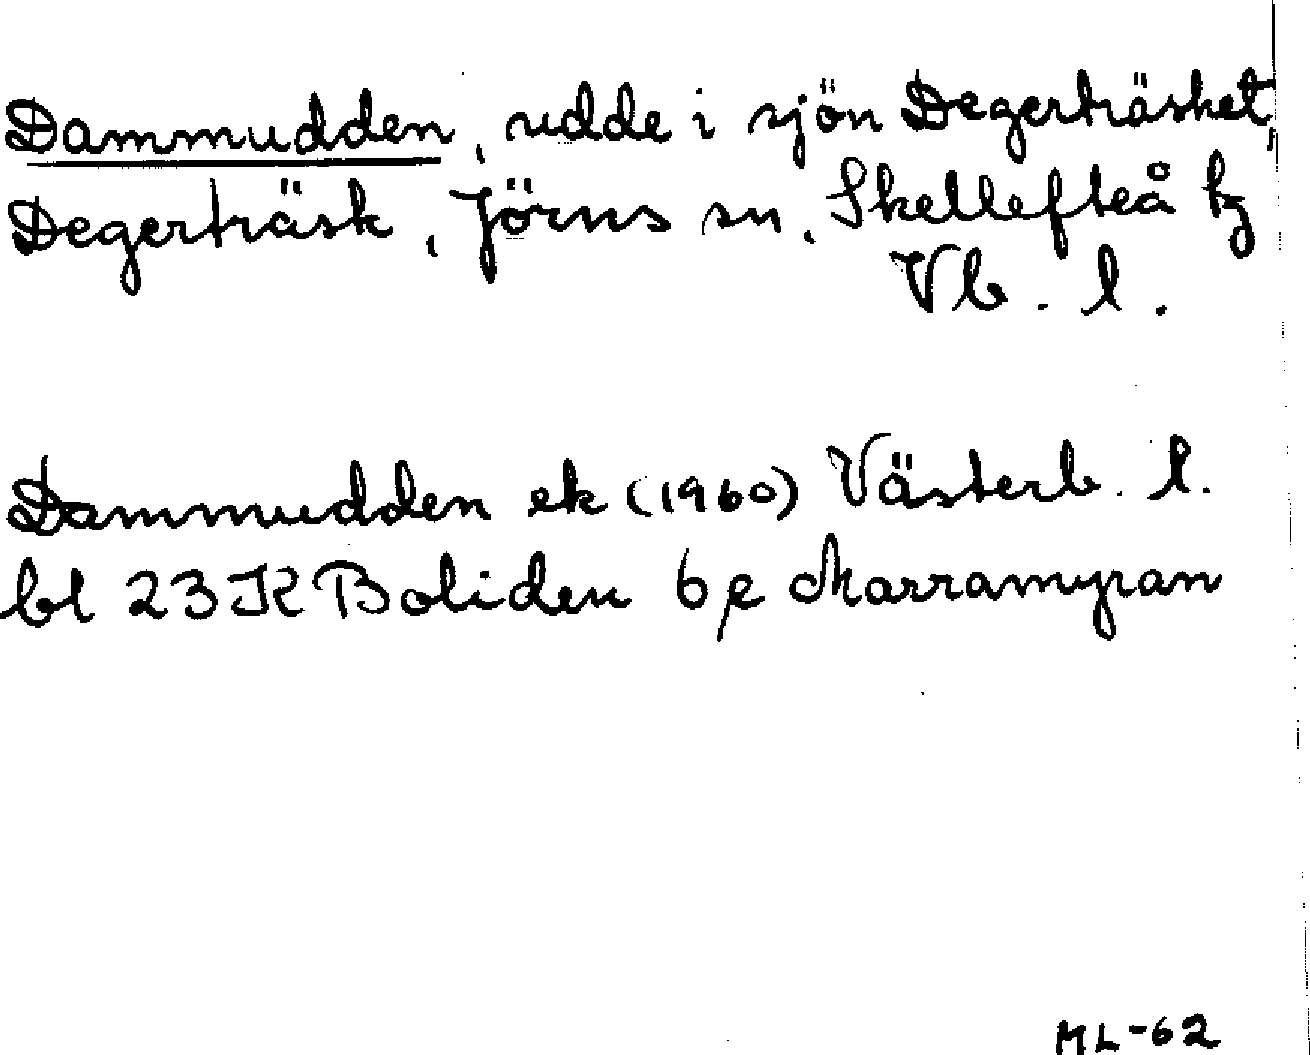 Dammudden, udde i sjön Degerträsket,
Degerträsk, Jörns sn, Skellefteå tg
Vb. l.
Dammudden ek (1960) Västerb. l.
bl 23 K Boliden 6 e Marramyran
ML-62